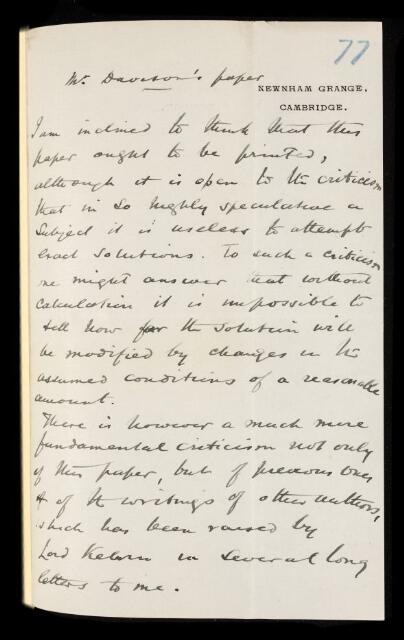 77
Mr. Davison's paper
NEWNHAM GRANGE,
CAMBRIDGE.
I am inclined to think that this
paper ought to be printed,
although it is open to the criticism
that in so highly speculative a
subject it is useless to attempt
exact solutions. To such a criticism
one might answer that without
calculation it is impossible to
tell how far the solution will
be modified by changes in the
assumed conditions of a reasonable
amount.
There is however a much more
fundamental criticism not only
of this paper, but of previous ones
& of the writings of other authors,
which has been raised by
Lord Kelvin in several long
letters to me.